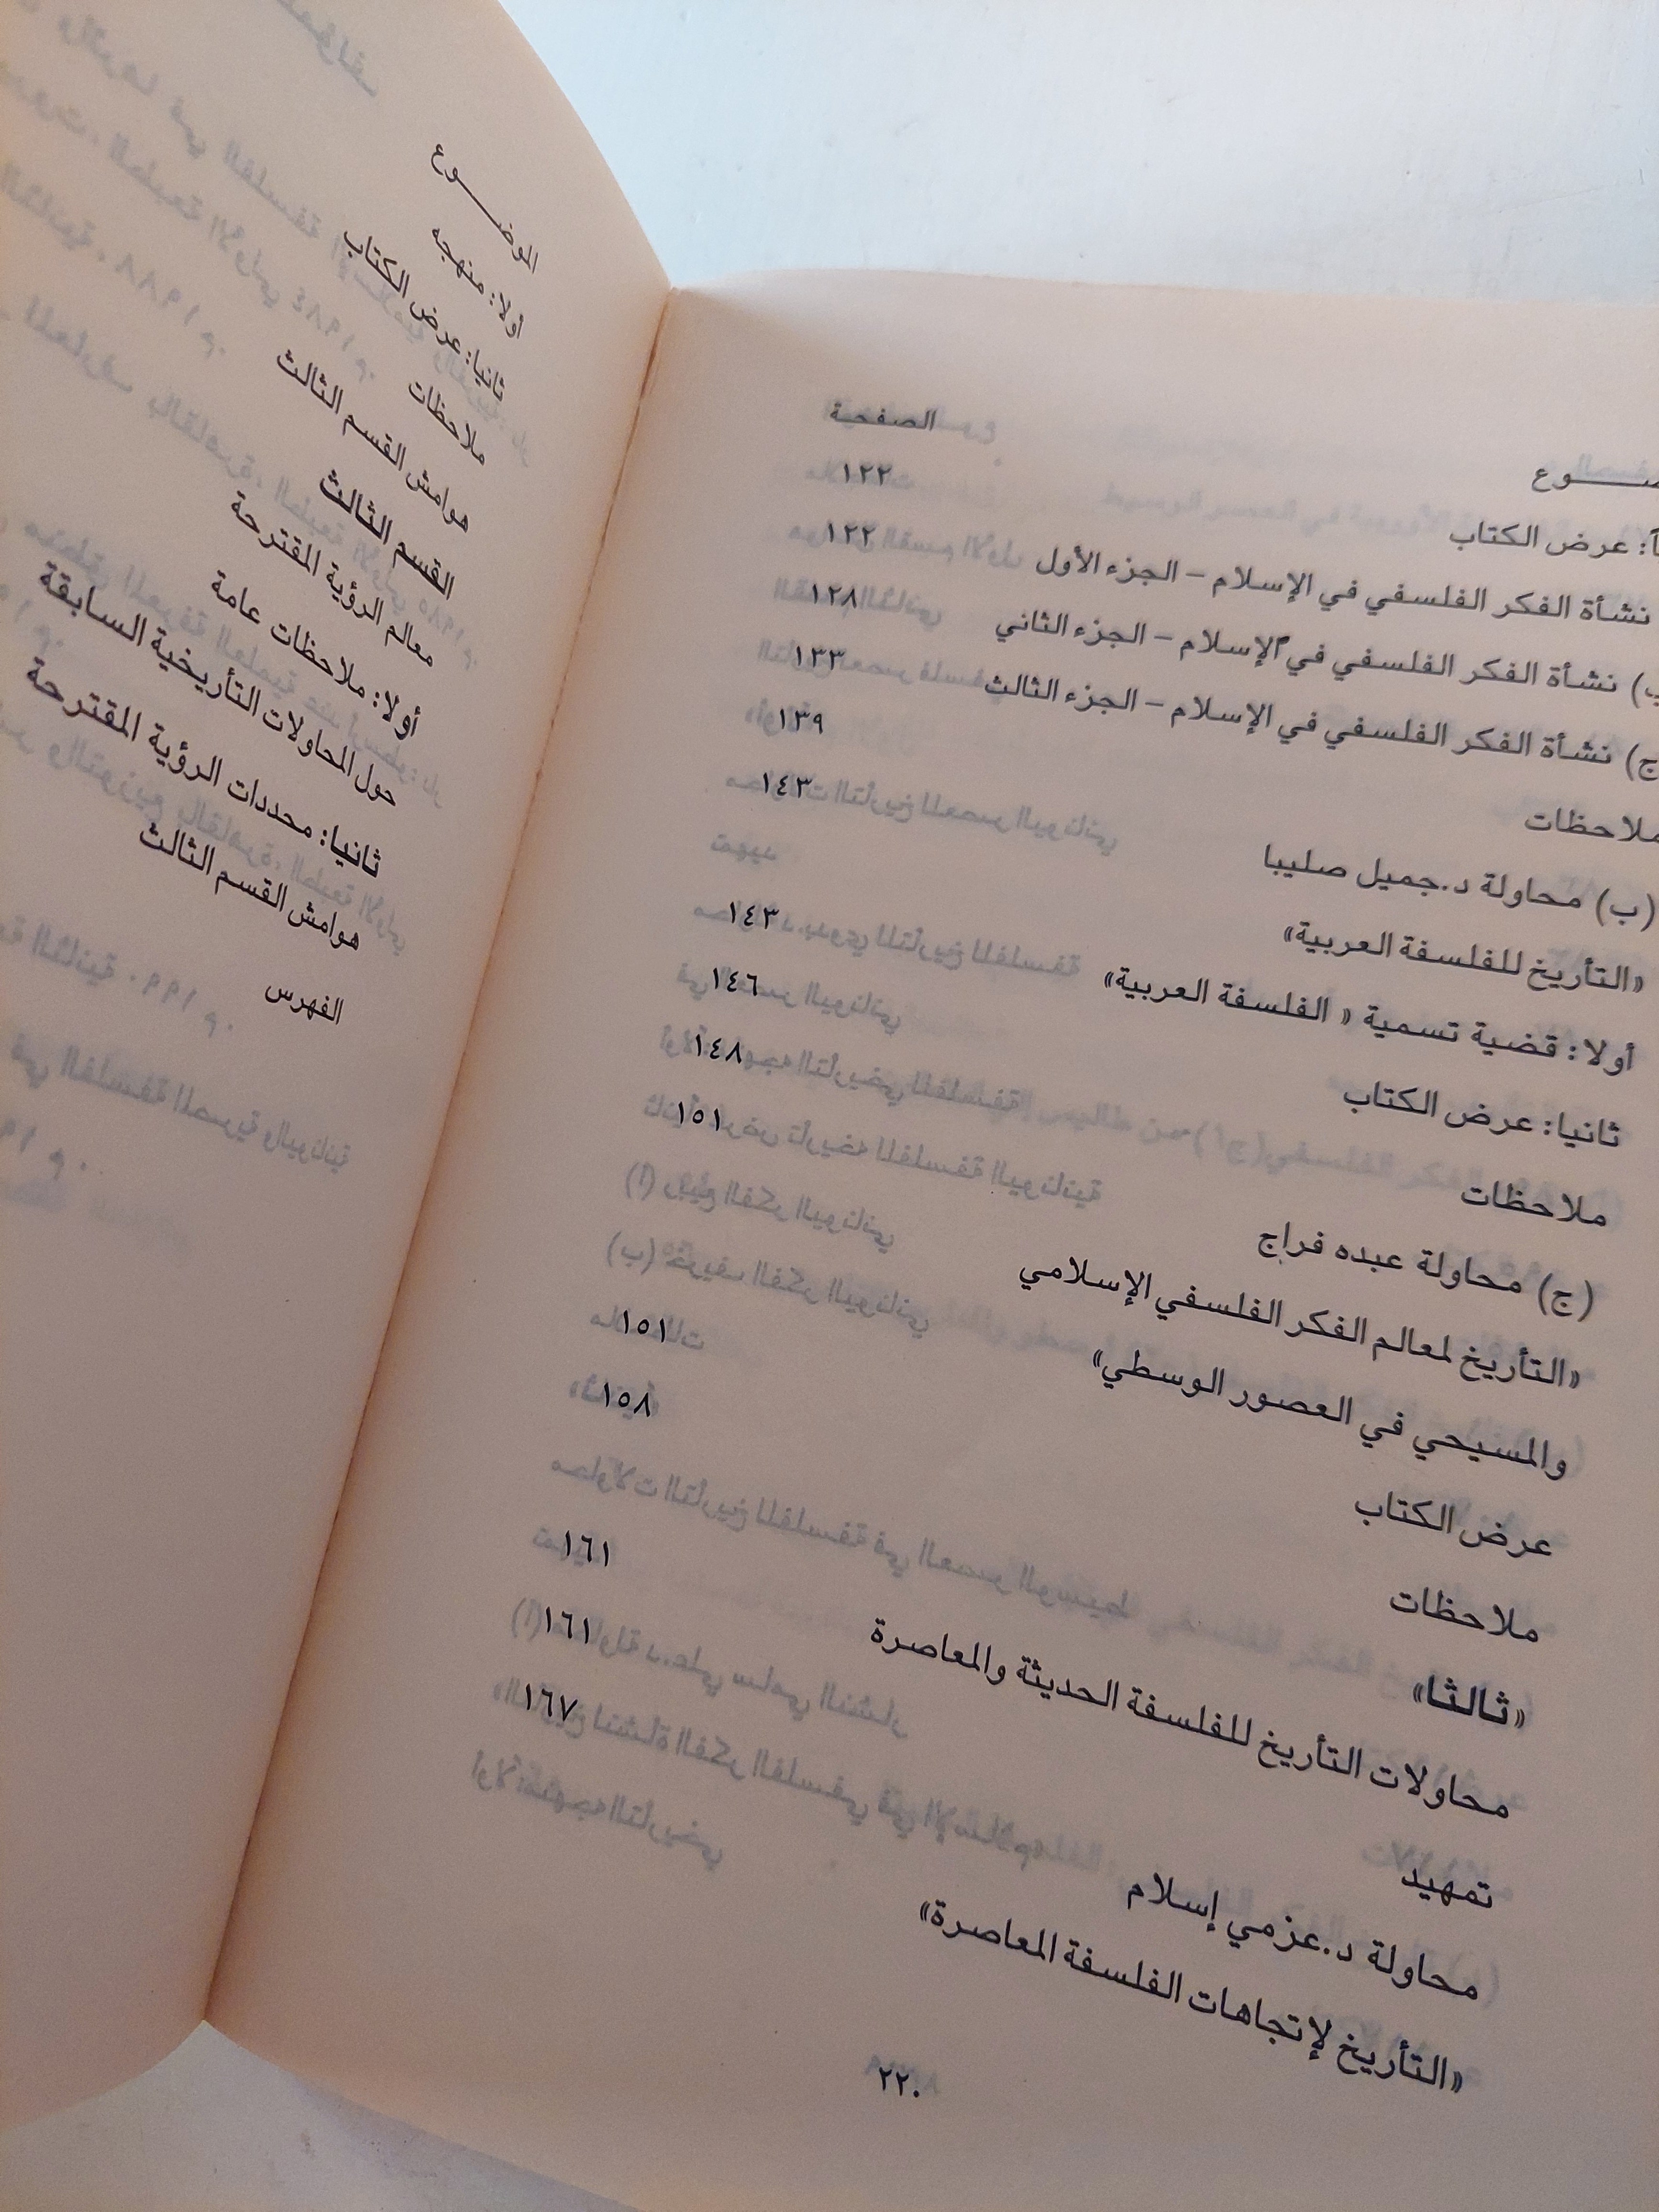 ـوع الصفحة
أ: عرض الكتاب ١٢٢
نشأة الفكر الفلسفي في الإسلام – الجزء الأول ١٢٢
ب) نشأة الفكر الفلسفي في الإسلام – الجزء الثاني ١٢٨
ج) نشأة الفكر الفلسفي في الإسلام – الجزء الثالث ١٣٣
ملاحظات ١٣٩
(ب) محاولة د.جميل صليبا ١٤٣
«التأريخ للفلسفة العربية»
أولا: قضية تسمية « الفلسفة العربية» ١٤٣
ثانيا: عرض الكتاب ١٤٦
ملاحظات ١٤٨
(ج) محاولة عبده فراج ١٥١
«التأريخ لمعالم الفكر الفلسفي الإسلامي
والمسيحي في العصور الوسطي»
عرض الكتاب ١٥١
ملاحظات ١٥٨
«ثالثا»
محاولات التأريخ للفلسفة الحديثة والمعاصرة ١٦١
تمهيد ١٦١
محاولة د.عزمي إسلام ١٦٧
«التأريخ لإتجاهات الفلسفة المعاصرة»
٢٢٠
الموضـــوع
أولا: منهجه
ثانيا: عرض الكتاب
ملاحظات
هوامش القسم الثالث
القسم الثالث
معالم الرؤية المقترحة
أولا: ملاحظات عامة
حول المحاولات التأريخية السابقة
ثانيا: محددات الرؤية المقترحة
هوامش القسم الثالث
الفهرس